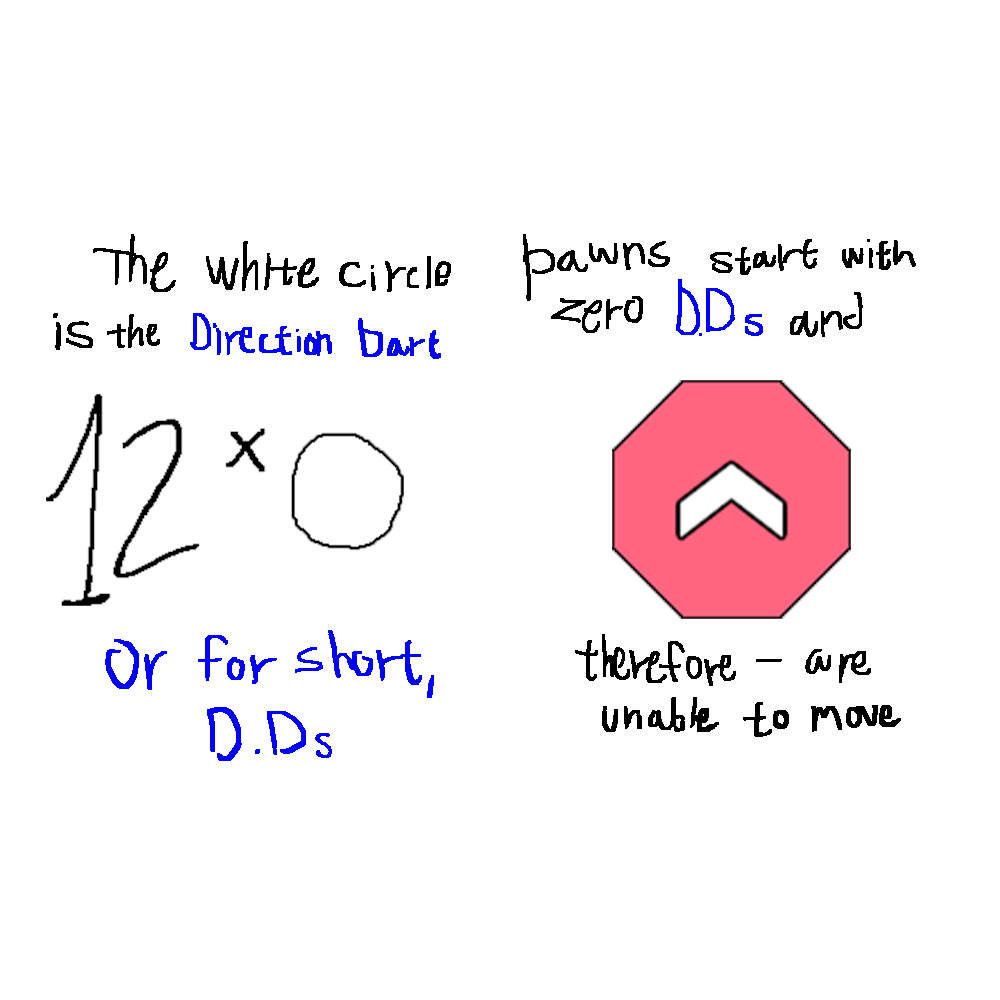 The white circle
is the Direction Dart
12 x
Or for short,
D.Ds
pawns start with
zero D.Ds and
therefore - are
unable to move